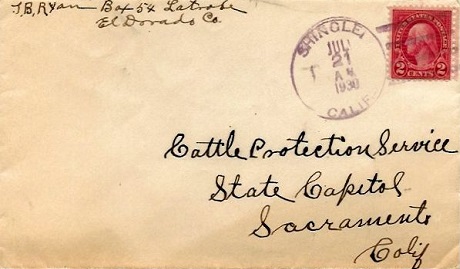 J.B. Ryan Box 54 Latrobe
El Dorado Co.
SHINGLE
JUL
21
A M
1930
CALIF
UNITED STATES POSTAGE
2 CENTS 2
Cattle Protection Service
State Capitol
Sacramento
Calif